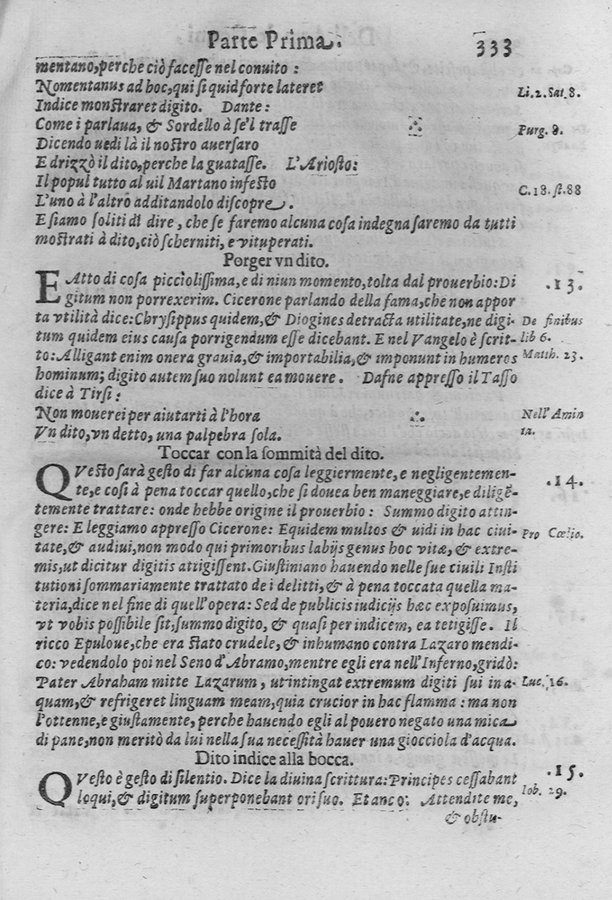 Parte Prima. 333
mentano, perche ciò facesse nel conuito :
Nomentanus ad hoc, qui si quid forte lateret Li. 2. Sat. 8.
Indice monstraret digito. Dante:
Come i parlaua, & Sordello à se'l trasse
Dicendo uedi là il nostro auersaro Purg. 8.
E drizzò il dito, perche la guatasse. L'Ariosto:
Il popul tutto al uil Martano infesto C. 18. st. 88
L'uno à l'altro additandolo discopre.
E siamo soliti di dire, che se faremo alcuna cosa indegna saremo da tutti
mostrati à dito, ciò scherniti, e vituperati.
Porger vn dito.
EAtto di cosa picciolissima, e di niun momento, tolta dal prouerbio: Di .13.
gitum non porrexerim. Cicerone parlando della fama, che non appor
ta vtilità dice: Chrysippus quidem, & Diogines detracta utilitate, ne digi- De finibus
tum quidem eius causa porrigendum esse dicebant. E nel Vangelo è scrit- lib 6.
to: Alligant enim onera grauia, & importabilia, & imponunt in humeros Matth. 23.
hominum; digito autem suo nolunt ea mouere. Dafne appresso il Tasso
dice à Tirsi:
Non mouerei per aiutarti à l'hora Nell' Amin
Vn dito, vn detto, una palpebra sola. ta.
Toccar con la sommità del dito.
QVesto sarà gesto di far alcuna cosa leggiermente, e negligentemen- .14.
te, e cosi à pena toccar quello, che si douea ben maneggiare, e diligẽ-
temente trattare: onde hebbe origine il prouerbio: Summo digito attin-
gere: E leggiamo appresso Cicerone: Equidem multos & uidi in hac ciui- Pro Cœlio.
tate, & audiui, non modo qui primoribus labijs genus hoc vitæ, & extre-
mis, ut dicitur digitis attigissent. Giustiniano hauendo nelle sue ciuili Insti
tutioni sommariamente trattato de i delitti, & à pena toccata quella ma-
teria, dice nel fine di quell'opera: Sed de publicis iudicijs hæc exposuimus,
vt vobis possibile sit, summo digito, & quasi per indicem, ea tetigisse. Il
ricco Epuloue, che era stato crudele, & inhumano contra Lazaro mendi-
co: vedendolo poi nel Seno d'Abramo, mentre egli era nell'Inferno, gridò:
Pater Abraham mitte Lazarum, ut intingat extremum digiti sui in a- Luc. 16.
quam, & refrigeret linguam meam, quia crucior in hac flamma : ma non
l'ottenne, e giustamente, perche hauendo egli al pouero negato una mica
di pane, non meritò da lui nella sua necessità hauer una giocciola d'acqua.
Dito indice alla bocca.
QVesto è gesto di silentio. Dice la diuina scrittura: Principes cessabant .15.
loqui, & digitum superponebant ori suo. Et anco: Attendite me, Iob. 29.
& obstu-